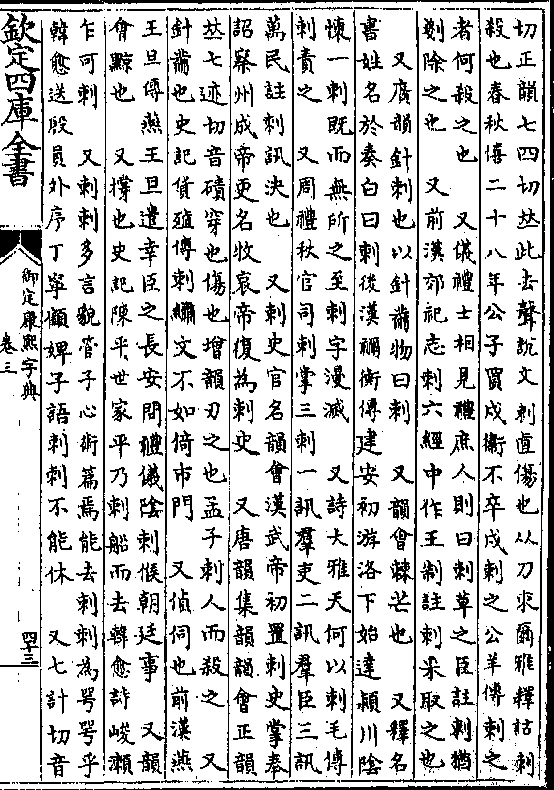 切正韻七四切𠀤此去聲說文刺直傷也从刀朿爾雅釋詁刺
殺也春秋僖二十八年公子買戍衞不卒戍刺之公羊傳刺之
者何殺之也 又儀禮士相見禮庶人則曰刺草之臣註刺猶
剗除之也 又前漢郊祀志刺六經中作王制註刺采取之也
又廣韻針刺也以針黹物曰刺 又韻會棘芒也 又釋名
書姓名於奏白曰刺後漢禰衡傳建安初游洛下始達潁川隂
懷一刺旣而無所之至刺字漫滅 又詩大雅天何以刺毛傳
刺責之 又周禮秋官司刺掌三刺一訊羣吏二訊羣臣三訊
萬民註刺訊決也 又刺史官名韻會漢武帝初置刺史掌奉
詔察州成帝更名牧哀帝復為刺史 又唐韻集韻韻會正韻
𠀤七迹切音磧穿也傷也增韻刃之也孟子刺人而殺之 又
針黹也史記貨殖傳刺繡文不如倚市門 又偵伺也前漢燕
王旦傳燕王旦遣幸臣之長安問禮儀隂刺候朝廷事 又韻
會黥也 又撑也史記陳平世家平乃刺船而去韓愈詩峻瀨
乍可刺 又刺刺多言貌管子心術篇焉能去刺刺為咢咢乎
韓愈送殷員外序丁寧顧婢子語刺刺不能休 又七計切音
欽定四庫全書
御定康熙字典
卷三
四十三